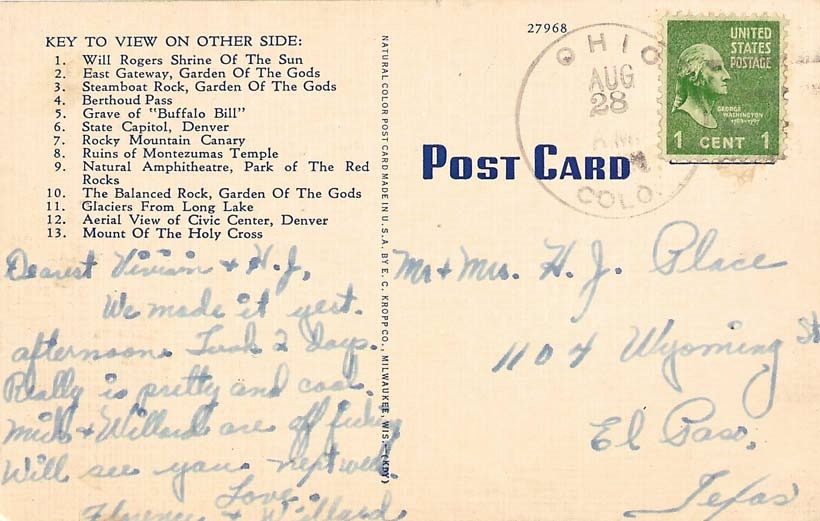 KEY TO VIEW ON OTHER SIDE:
1. Will Rogers Shrine Of The Sun
2. East Gateway, Garden Of The Gods
3. Steamboat Rock, Garden Of The Gods
4. Berthoud Pass
5. Grave of "Buffalo Bill"
6. State Capitol, Denver
7. Rocky Mountain Canary
8. Ruins of Montezumas Temple
9. Natural Amphitheatre, Park of The Red
Rocks
10. The Balanced Rock, Garden Of The Gods
11. Glaciers From Long Lake
12. Aerial View of Civic Center, Denver
13. Mount Of The Holy Cross
Dearest Vivian & H.J,
We made it yest.
afternoon. Took 2 days.
Really is pretty and cool.
& Willard are off fishing
Will see you next week.
Love.
Florence & Willard
NATURAL COLOR POST CARD MADE IN U.S.A. BY E. C. KROPP CO., MILWAUKEE, WIS.—(KDY)
27968
POST CARD
OHIO
AUG
28
A.M.
COLO.
UNITED
STATES
POSTAGE
GEORGE
WASHINGTON
1 CENT 1
Mr & Mrs. H. J. Place
1104 Wyoming St
El Paso,
Texas